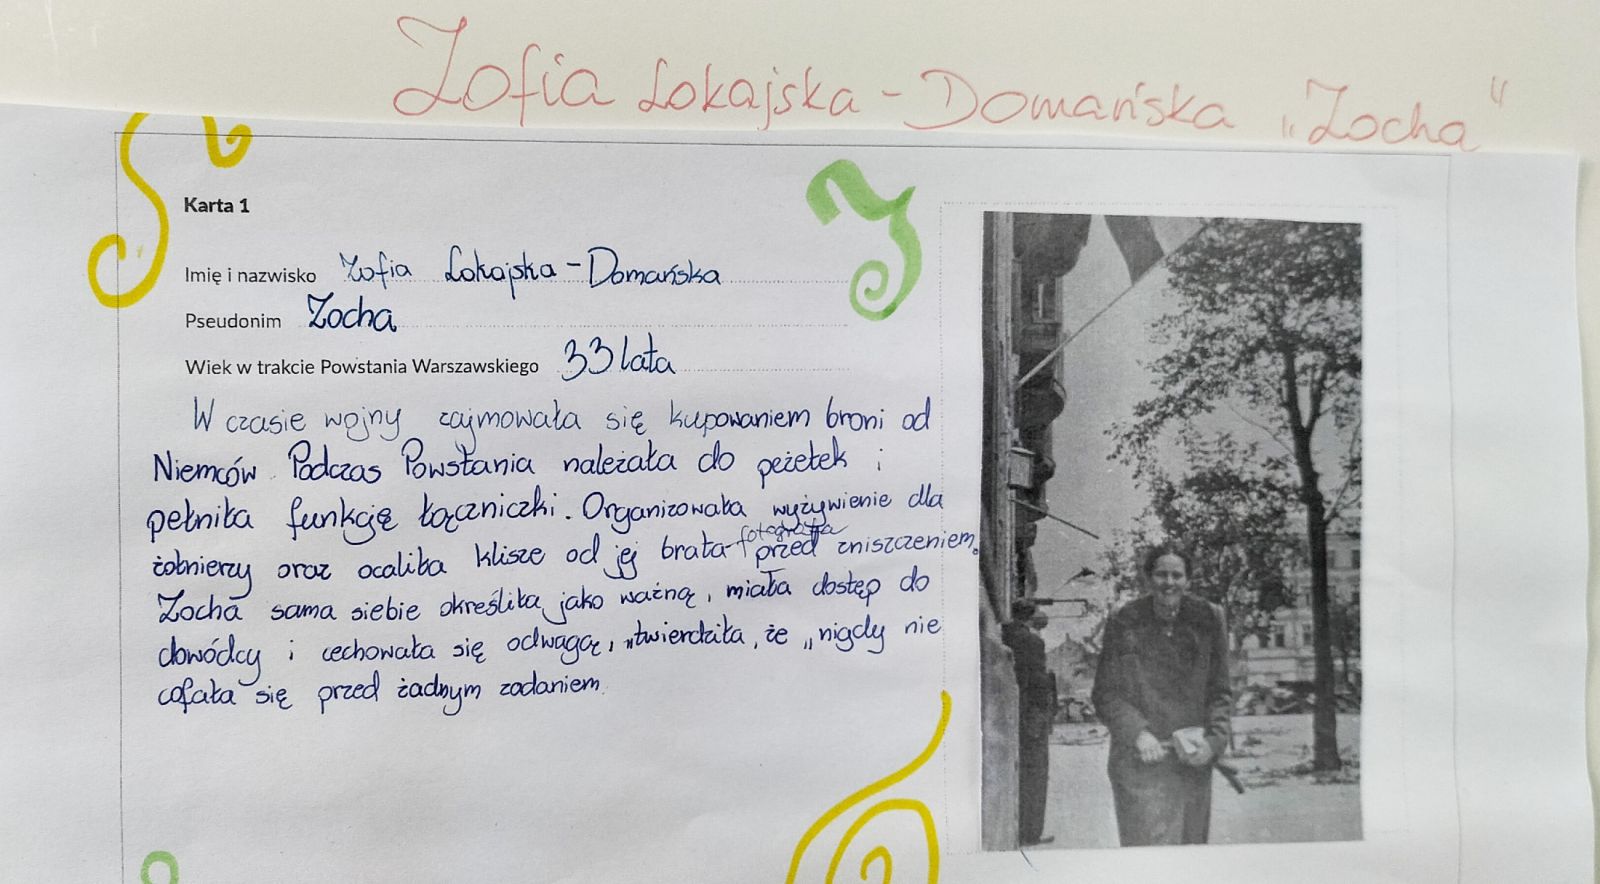 Zofia Lokajska-Domańska „Zocha”
Karta 1
Imię i nazwisko Zofia Lokajska-Domańska
Pseudonim Zocha
Wiek w trakcie Powstania Warszawskiego 33 lata
W czasie wojny zajmowała się kupowaniem broni od
Niemców. Podczas Powstania należała do peżetek i
pełniła funkcję łączniczki. Organizowała wyżywienie dla
żołnierzy oraz ocaliła klisze od jej brata-fotografa przed zniszczeniem.
Zocha sama siebie określiła jako ważną, miała dostęp do
dowódcy i cechowała się odwagą, twierdziła, że „nigdy nie
cofała się przed żadnym zadaniem